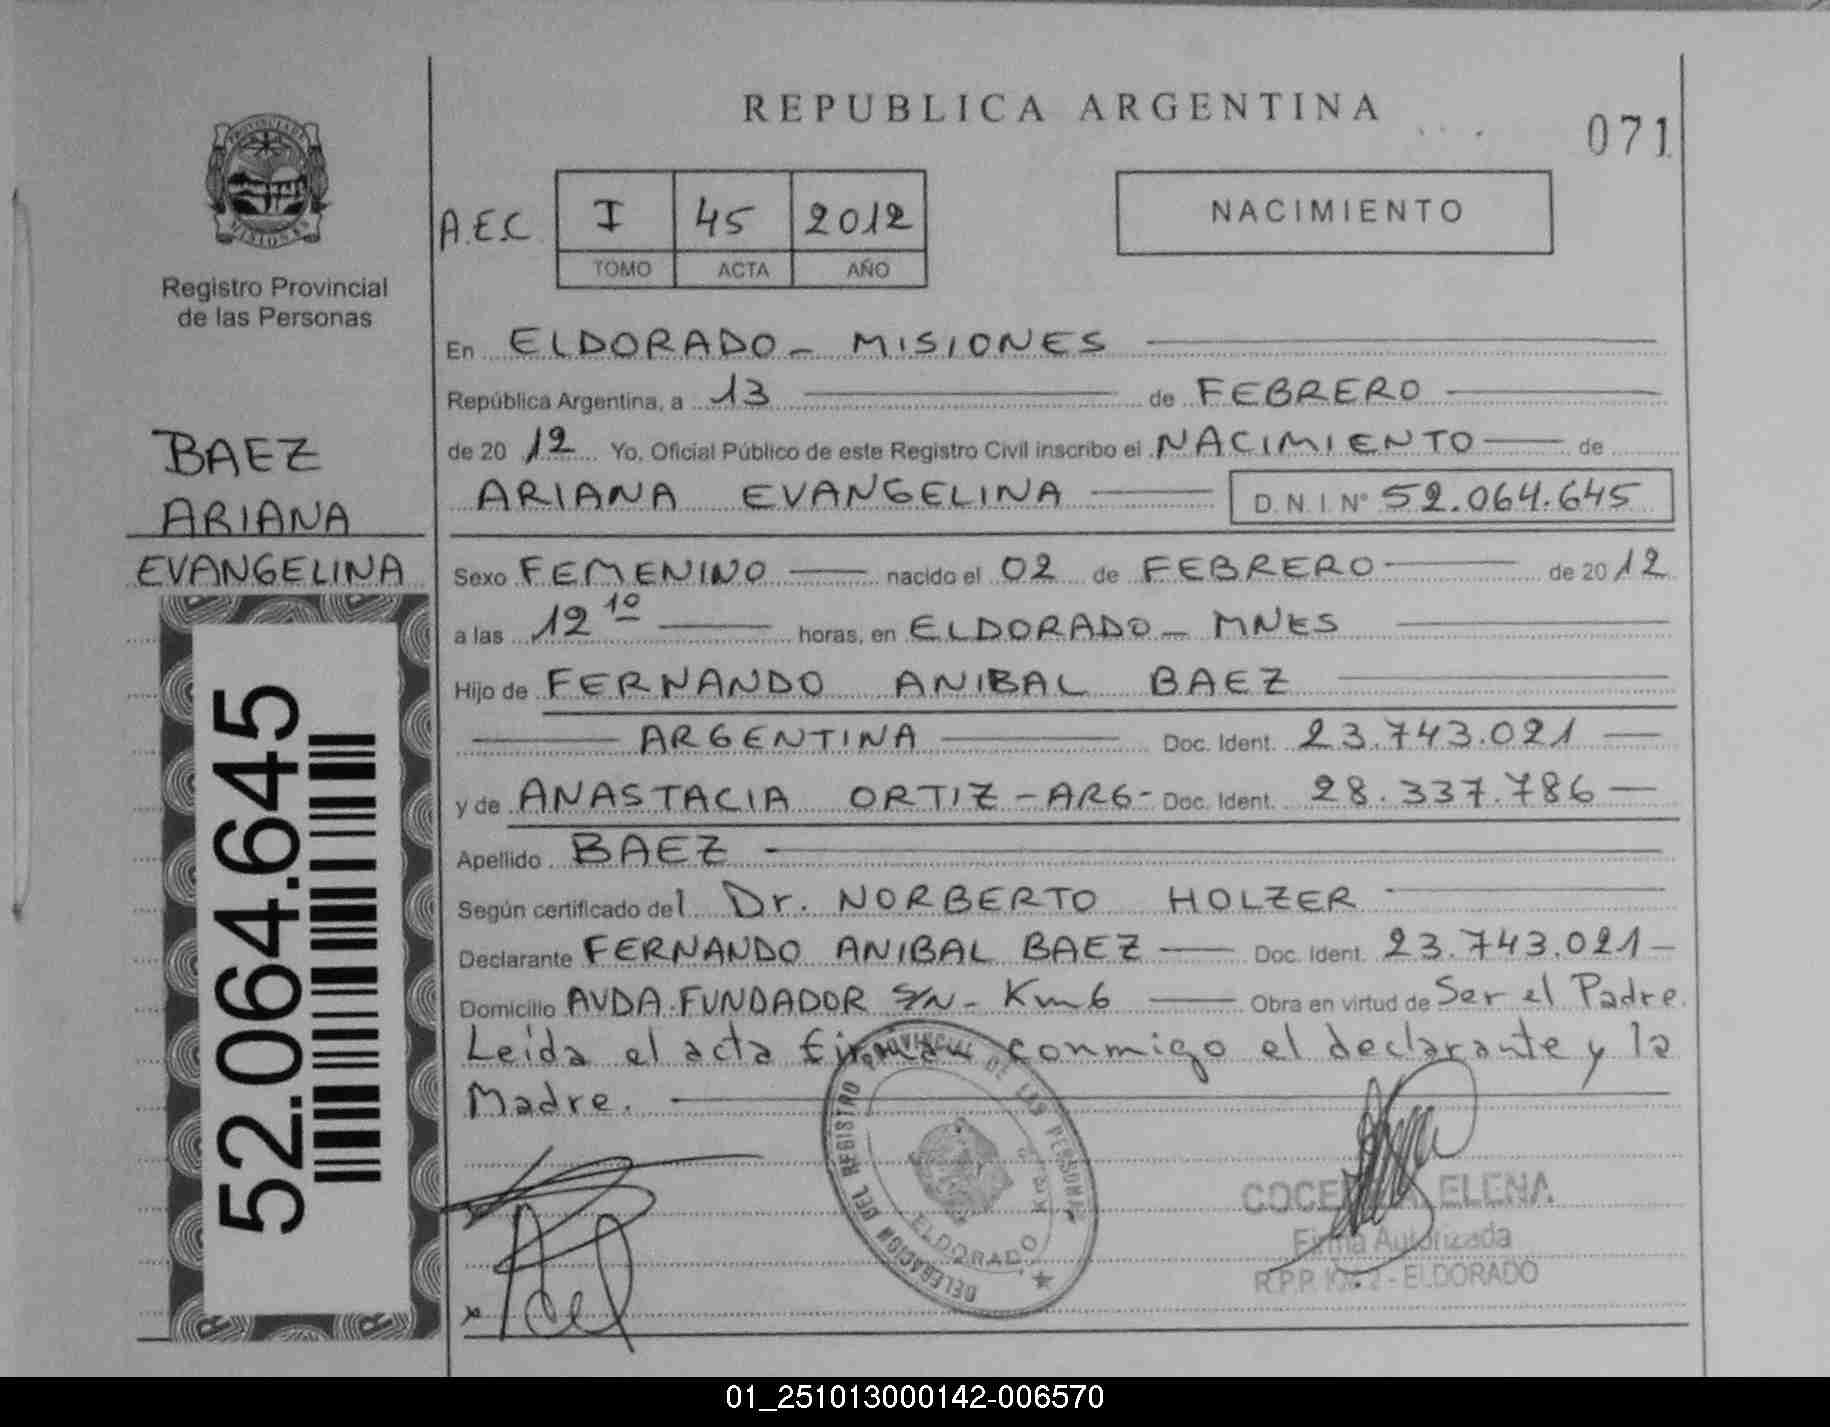 REPUBLICA ARGENTINA
071
PROVINCIA DE
MISIONES
Registro Provincial
de las Personas
A.E.C I 45 2012
TOMO ACTA AÑO
NACIMIENTO
En ELDORADO - MISIONES
República Argentina, a 13 de FEBRERO
de 20 12 Yo, Oficial Público de este Registro Civil inscribo el NACIMIENTO de
ARIANA EVANGELINA D.N.I. Nº 52.064.645
BAEZ
ARIANA
EVANGELINA
52.064.645
Sexo FEMENINO nacido el 02 de FEBRERO de 20 12
a las 12 10 horas, en ELDORADO - MNES
Hijo de FERNANDO ANIBAL BAEZ
ARGENTINA Doc. Ident. 23.743.021
y de ANASTACIA ORTIZ - ARG - Doc. Ident. 28.337.786
Apellido BAEZ
Según certificado del Dr. NORBERTO HOLZER
Declarante FERNANDO ANIBAL BAEZ Doc. Ident. 23.743.021
Domicilio AVDA. FUNDADOR S/N - Km 6 Obra en virtud de Ser el Padre.
Leida el acta firman conmigo el declarante y la
Madre.
DELEGACION DEL REGISTRO PROVINCIAL DE LAS PERSONAS
ELDORADO
ELENA
Firma Autorizada
R.P.P. - ELDORADO
01_251013000142-006570